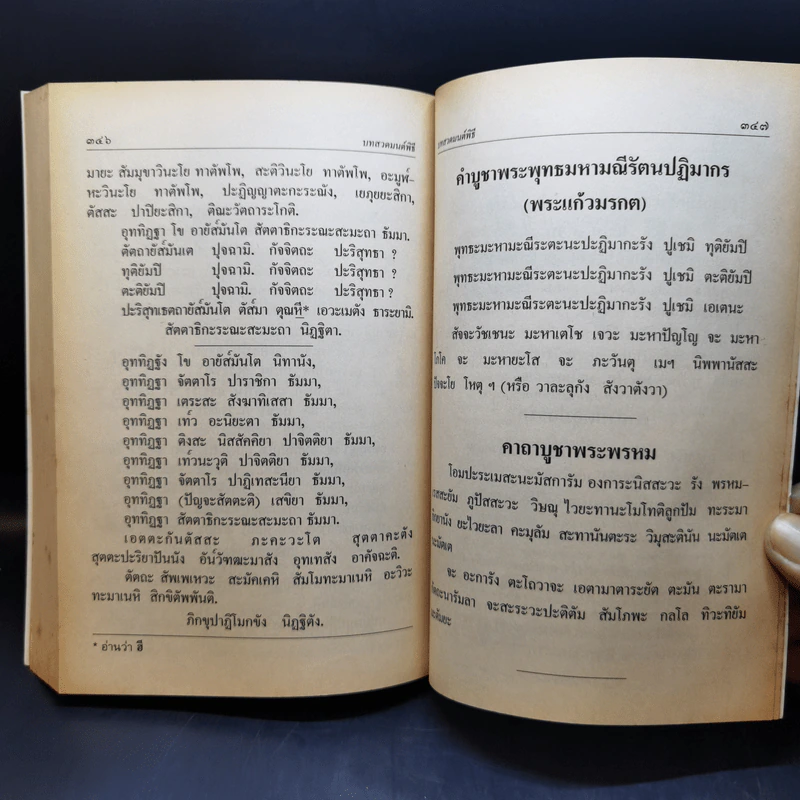 ๓๔๖ บทสวดมนต์พิธี
มายะ สัมมุขาวินะโย ทาตัพโพ, สะติวินะโย ทาตัพโพ, อะมูฬ๎-
หะวินะโย ทาตัพโพ, ปะฏิญญาตะกะระณัง, เยภุยยะสิกา,
ตัสสะ ปาปิยะสิกา, ติณะวัตถาระโกติ.
อุททิฏฐา โข อายัส๎มันโต สัตตาธิกะระณะสะมะถา ธัมมา.
ตัตถายัส๎มันเต ปุจฉามิ. กัจจิตถะ ปะริสุทธา ?
ทุติยัมปิ ปุจฉามิ. กัจจิตถะ ปะริสุทธา ?
ตะติยัมปิ ปุจฉามิ. กัจจิตถะ ปะริสุทธา ?
ปะริสุทเธตถายัส๎มันโต ตัส๎มา ตุณหี* เอวะเมตัง ธาระยามิ.
สัตตาธิกะระณะสะมะถา นิฏฐิตา.
อุททิฏฐัง โข อายัส๎มันโต นิทานัง,
อุททิฏฐา จัตตาโร ปาราชิกา ธัมมา,
อุททิฏฐา เตระสะ สังฆาทิเสสา ธัมมา,
อุททิฏฐา เท๎ว อะนิยะตา ธัมมา,
อุททิฏฐา ติงสะ นิสสัคคิยา ปาจิตติยา ธัมมา,
อุททิฏฐา เท๎วนะวุติ ปาจิตติยา ธัมมา,
อุททิฏฐา จัตตาโร ปาฏิเทสะนียา ธัมมา,
อุททิฏฐา (ปัญจะสัตตะติ) เสขิยา ธัมมา,
อุททิฏฐา สัตตาธิกะระณะสะมะถา ธัมมา.
เอตตะกันตัสสะ ภะคะวะโต สุตตาคะตัง
สุตตะปะริยาปันนัง อัน๎วัฑฒะมาสัง อุทเทสัง อาคัจฉะติ.
ตัตถะ สัพเพเหวะ สะมัคเคหิ สัมโมทะมาเนหิ อะวิวะ-
ทะมาเนหิ สิกขิตัพพันติ.
ภิกขุปาฏิโมกขัง นิฏฐิตัง.
* อ่านว่า ฮี
บทสวดมนต์พิธี ๓๔๗
คำบูชาพระพุทธมหามณีรัตนปฏิมากร
(พระแก้วมรกต)
พุทธะมะหามะณีระตะนะปะฏิมากะรัง ปูเชมิ ทุติยัมปิ
พุทธะมะหามะณีระตะนะปะฏิมากะรัง ปูเชมิ ตะติยัมปิ
พุทธะมะหามะณีระตะนะปะฏิมากะรัง ปูเชมิ เอเตนะ
สัจจะวัชเชนะ มะหาเตโช เจวะ มะหาปัญโญ จะ มะหา
โภโค จะ มะหายะโส จะ ภะวันตุ เมฯ นิพพานัสสะ
ปัจจะโย โหตุ ฯ (หรือ วาละลุกัง สังวาตังวา)
คาถาบูชาพระพรหม
โอมปะระเมสะนะมัสการัม องการะนิสสะวะ รัง พรหม-
เรสสะยัม ภูปัสสะวะ วิษณุ ไวยะทานะโมโทติลูกปัม ทะระมา
ยิกยานัง ยะไวยะลา คะมุลัม สะทานันตะระ วิมุสะตินัน นะมัตเต
นะมัตเต
จะ อะการัง ตะโถวาจะ เอตามาตาระยัต ตะมัน ตะรามา
กัตถะนารัมลา จะสะระวะปะติตัม สัมโภพะ กลโล ทิวะทิยัม
มะตัมยะ